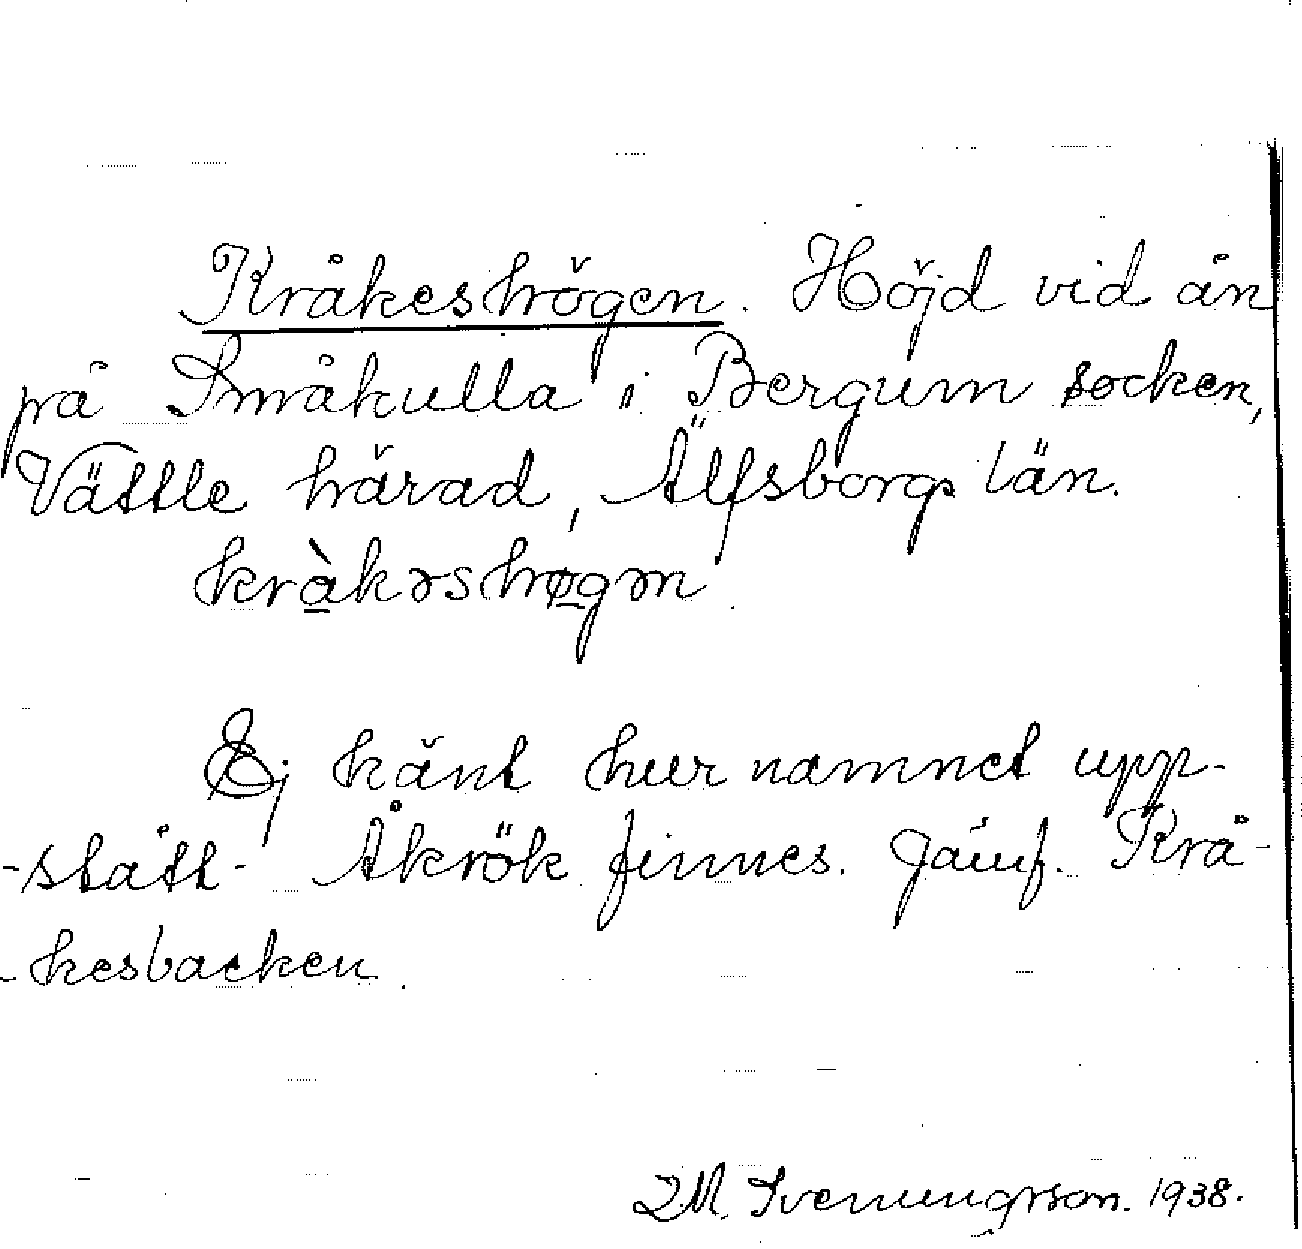 Kråkeshögen. Höjd vid ån
på Småkulla i Bergum socken,
Vättle härad, Älfsborgs län.
kràkəshøgən
Ej känt hur namnet upp-
-stått. Åkrök finnes. Jämf. Krå-
-kesbacken.
M. Svenungsson. 1938.